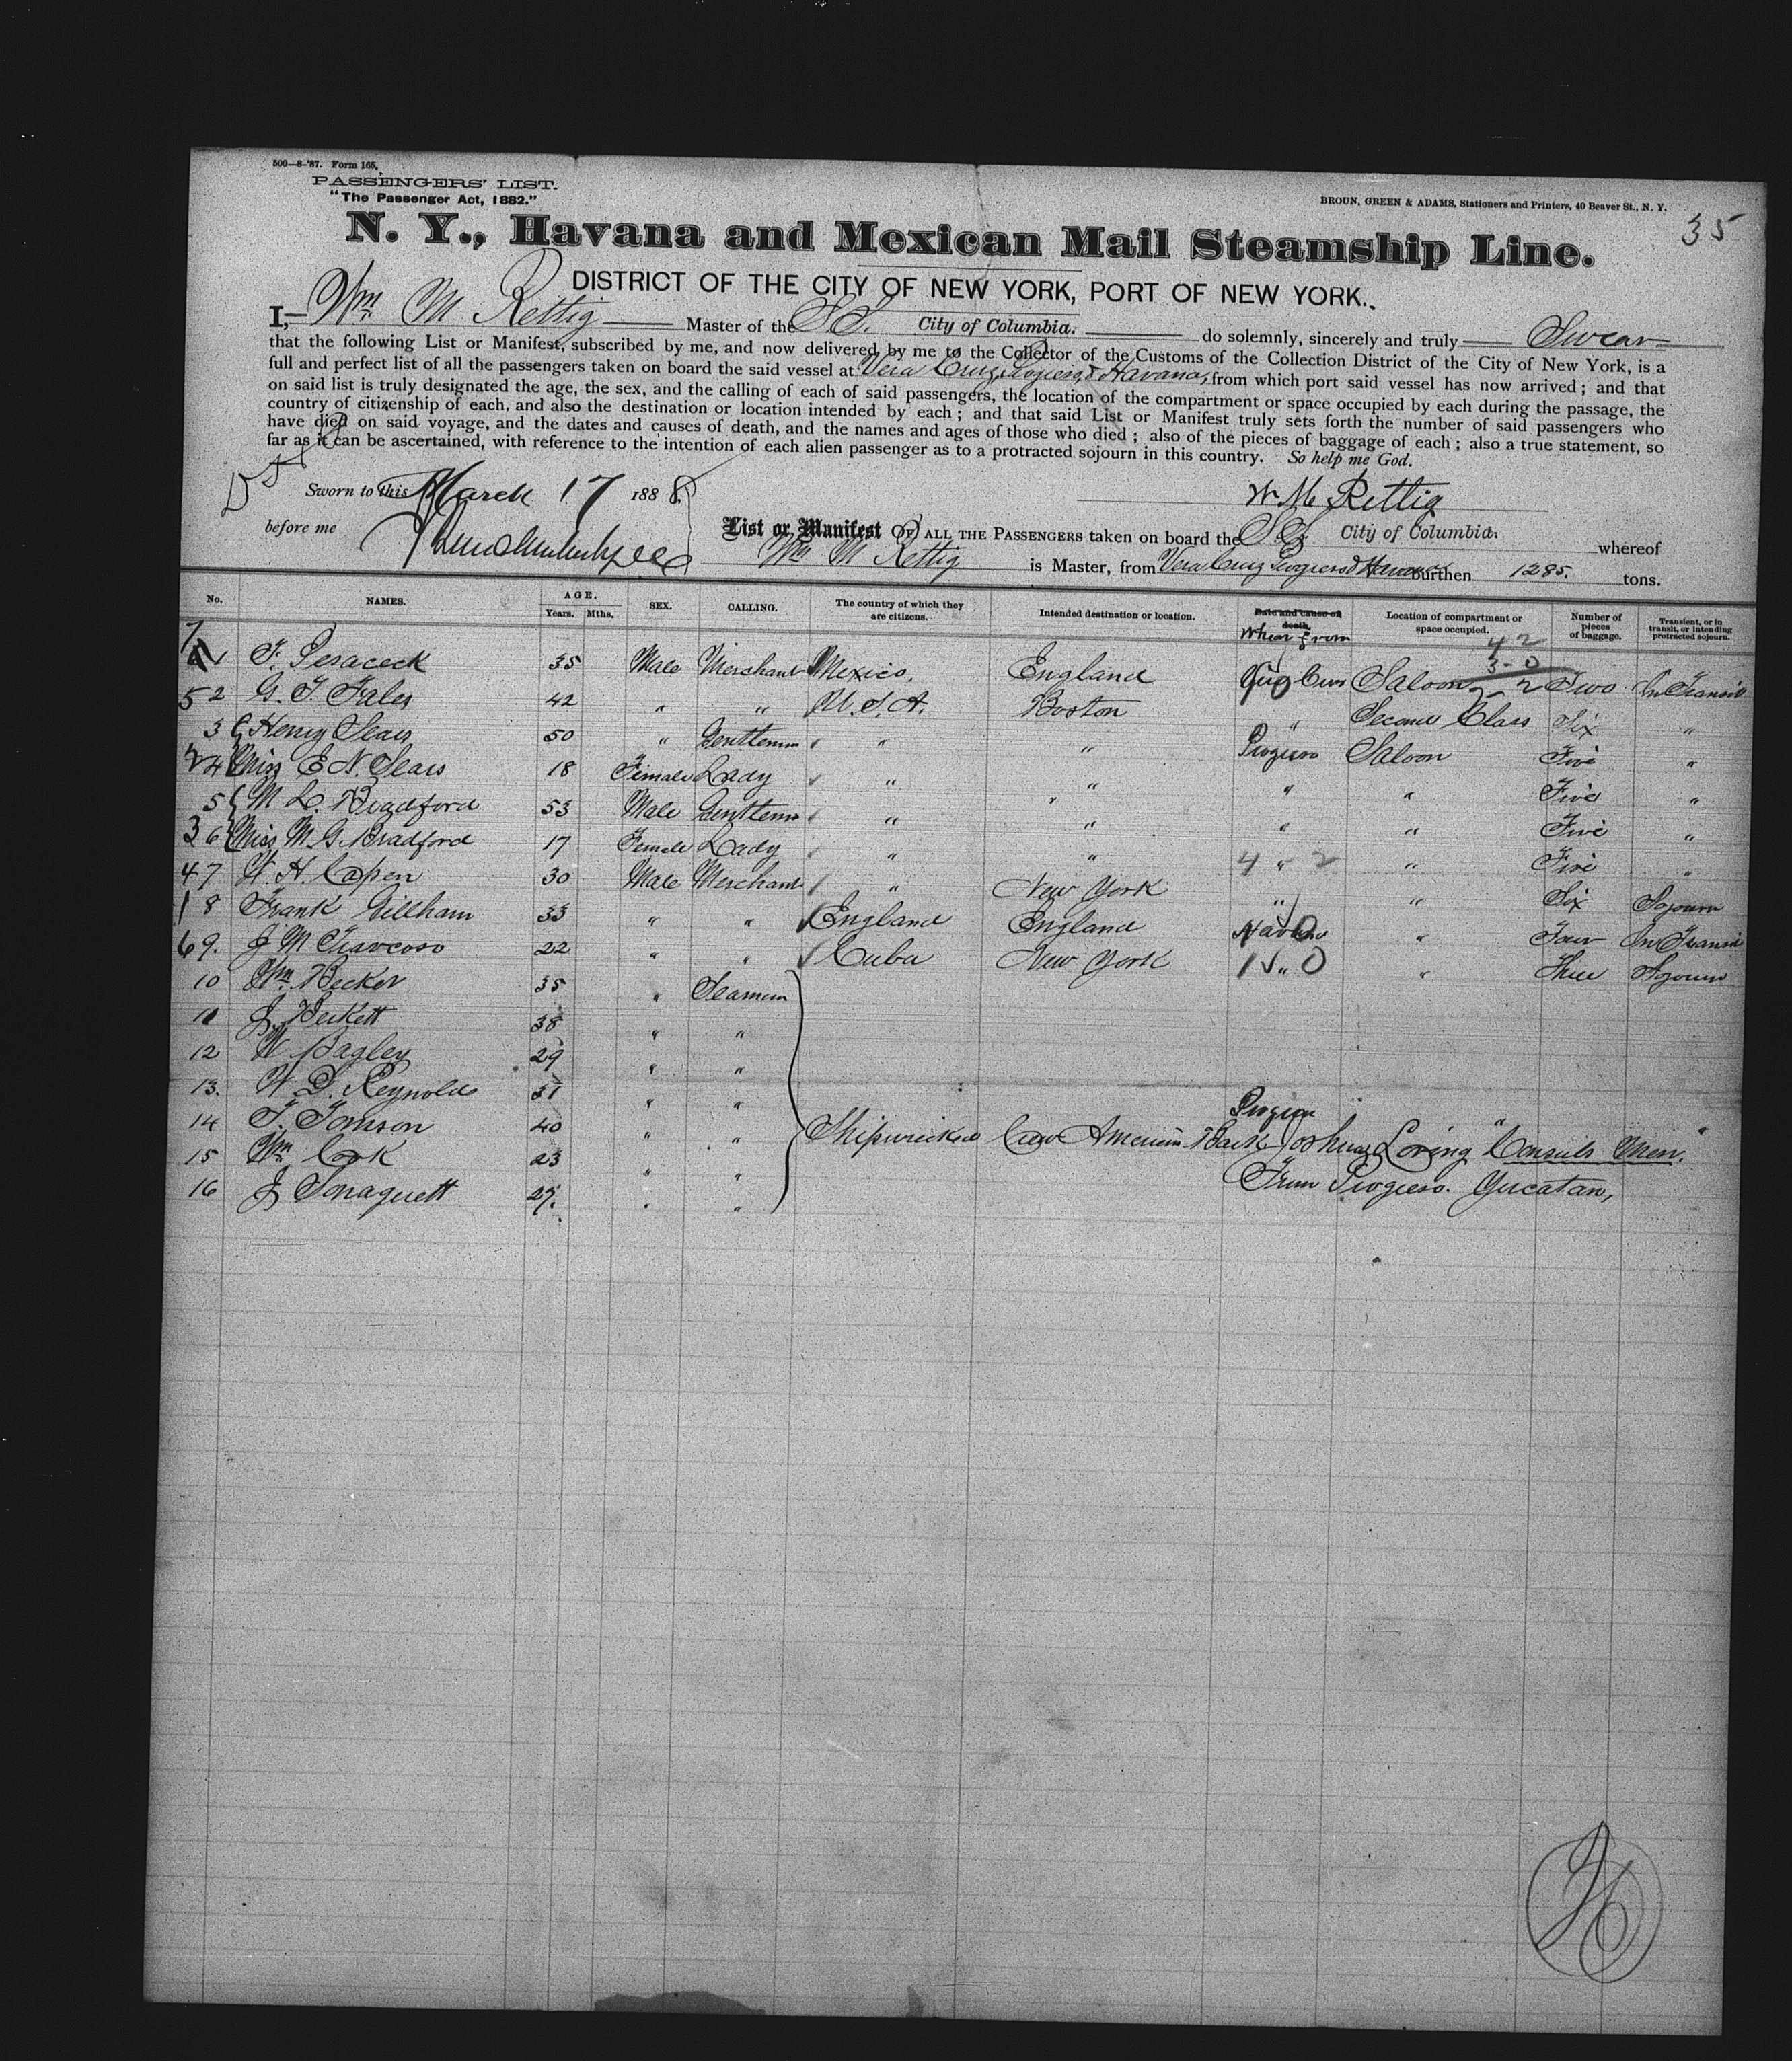 500—8-'87. Form 165.
PASSENGERS' LIST.
"The Passenger Act, 1882."
BROUN, GREEN & ADAMS, Stationers and Printers, 40 Beaver St., N. Y.
35
N. Y., Havana and Mexican Mail Steamship Line.
DISTRICT OF THE CITY OF NEW YORK, PORT OF NEW YORK.
I, Wm M Rettig Master of the S.S. City of Columbia. do solemnly, sincerely and truly Swear
that the following List or Manifest, subscribed by me, and now delivered by me to the Collector of the Customs of the Collection District of the City of New York, is a
full and perfect list of all the passengers taken on board the said vessel at Vera Cruz, Progreso, & Havana, from which port said vessel has now arrived; and that
on said list is truly designated the age, the sex, and the calling of each of said passengers, the location of the compartment or space occupied by each during the passage, the
country of citizenship of each, and also the destination or location intended by each; and that said List or Manifest truly sets forth the number of said passengers who
have died on said voyage, and the dates and causes of death, and the names and ages of those who died; also of the pieces of baggage of each; also a true statement, so
far as it can be ascertained, with reference to the intention of each alien passenger as to a protracted sojourn in this country. So help me God.
Sworn to this March 17 1888
W M Rettig
before me
List or Manifest OF ALL THE PASSENGERS taken on board the S.S. City of Columbia. whereof
Wm M Rettig is Master, from Vera Cruz Progreso & Havana burthen 1285. tons.
No. NAMES. AGE. Years. Mths. SEX. CALLING. The country of which they are citizens. Intended destination or location. Date and cause of death. When from Location of compartment or space occupied. Number of pieces of baggage. Transient, or in transit, or intending protracted sojourn.
42
3-0
1 F. 35 Male Merchant Mexico, England Saloon Two In Transit
5 2 G. F. Fales 42 " " U.S.A. Boston " Second Class Six "
3 Henry Sears 50 " Gentleman " " Progreso Saloon Five "
2 4 Miss E N. Sears 18 Female Lady " " " " Five "
5 M L. Bradford 53 Male Gentleman " " " " Five "
3 6 Miss M. G. Bradford 17 Female Lady " " 4 " 2 " Five "
4 7 W. H. Capen 30 Male Merchant " New York " " Six Sojourn
1 8 Frank Gillham 33 " " England England Havana " Four In Transit
6 9. J M 22 " " Cuba New York " " Three Sojourn
10 Wm Becker 35 " Seaman
11 J Beckett 38 " "
12 W Bagley 29 " "
13. W S. Reynolds 31 " "
Progreso
14 T. Tomson 40 " " Shipwrecked Crew American Bark "Joshua Loring" Consuls Men.
15 Wm Cook 23 " "
From Progreso. Yucatan,
16 J 27. " "